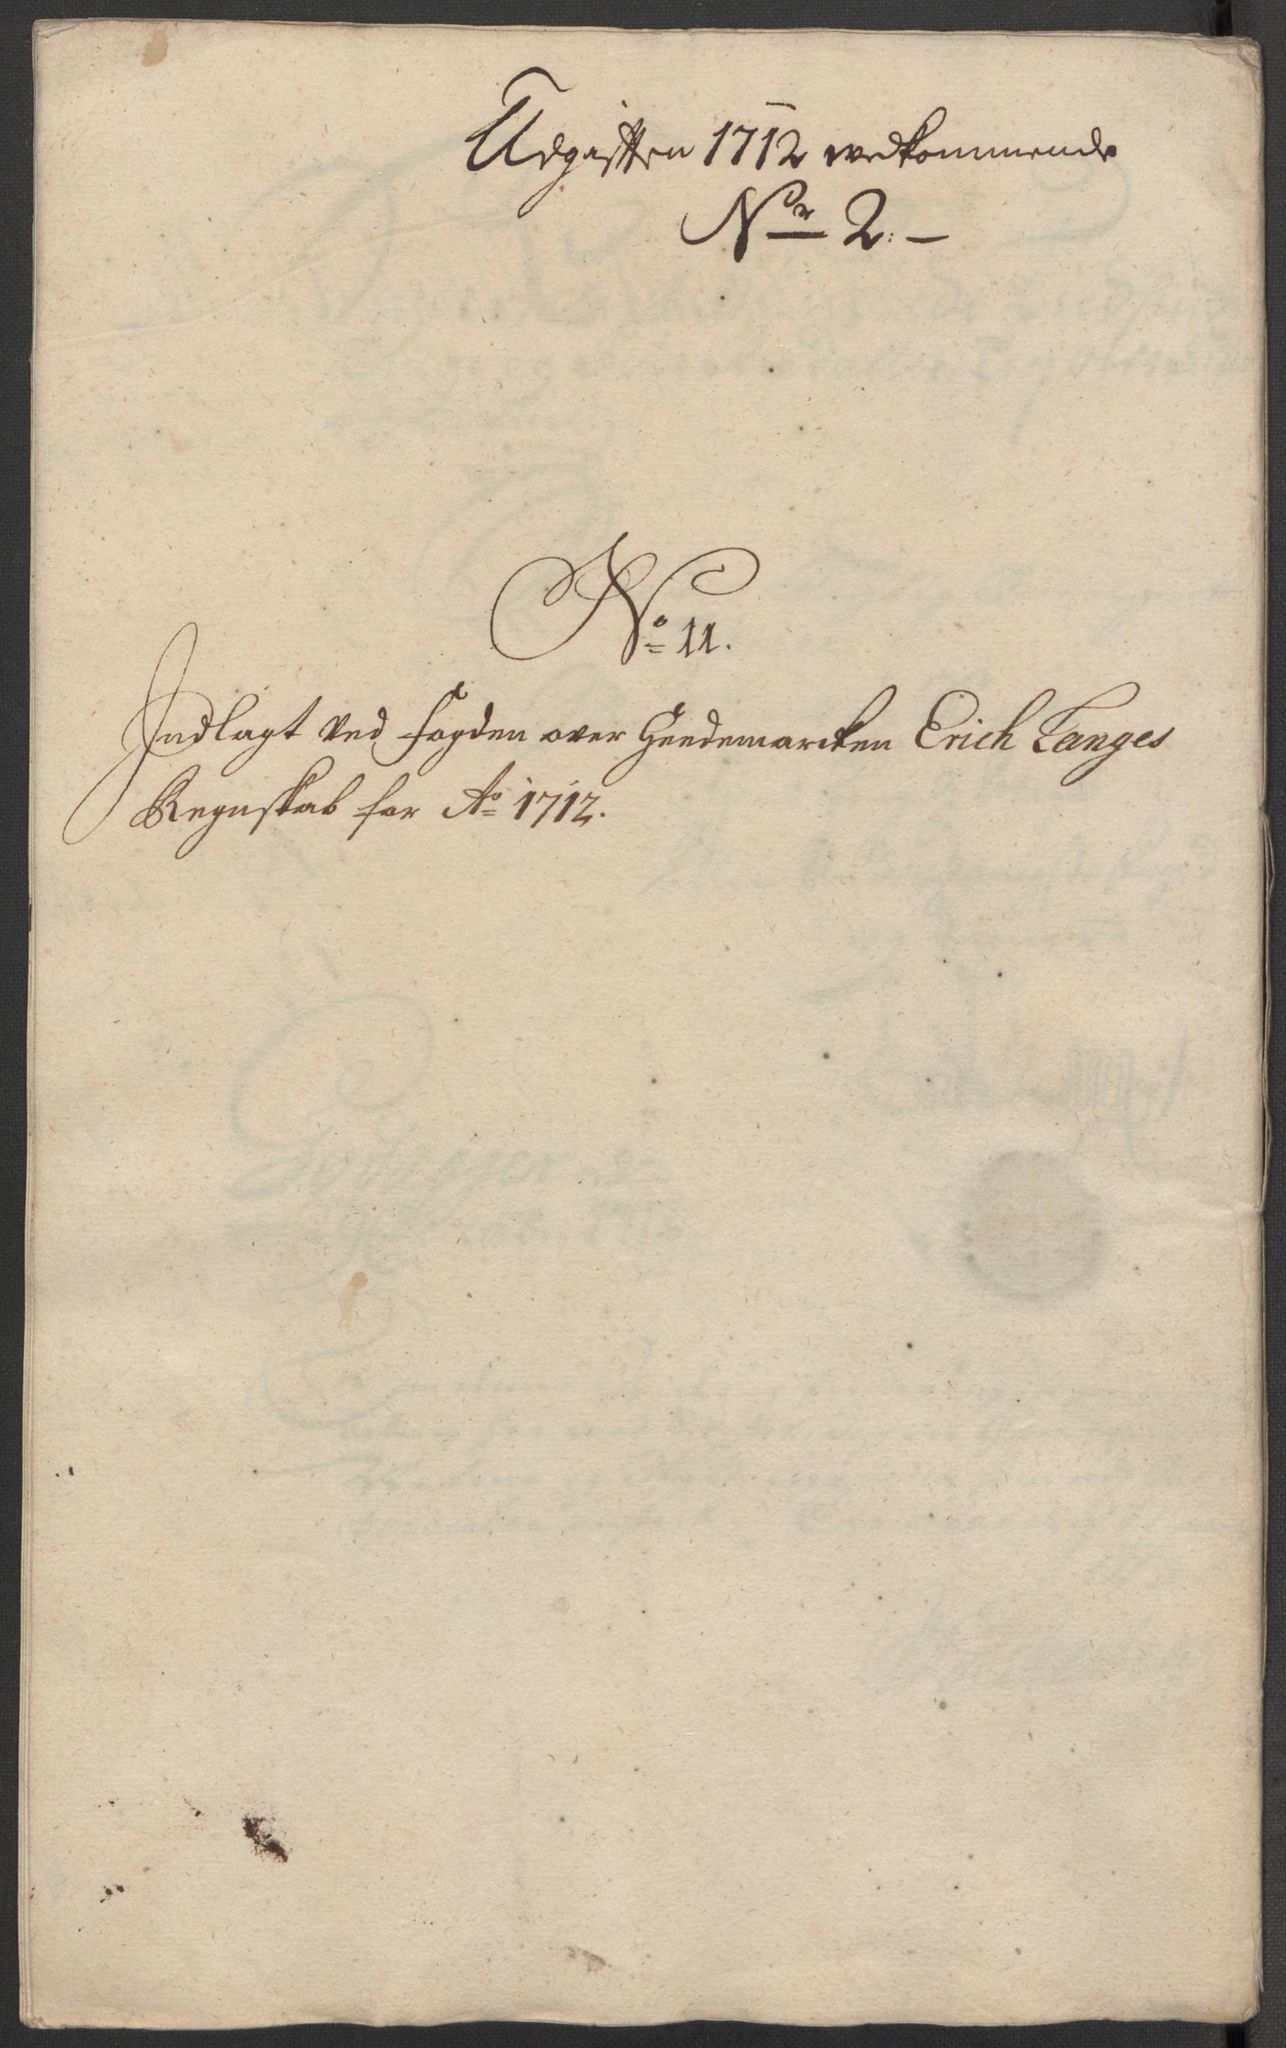 Udgiften 1712 vedkommende
Nr 2.
No 11.
Indlagt ved Fogden over Heedemarcken Erich Langes
Regnskab for Ao 1712.